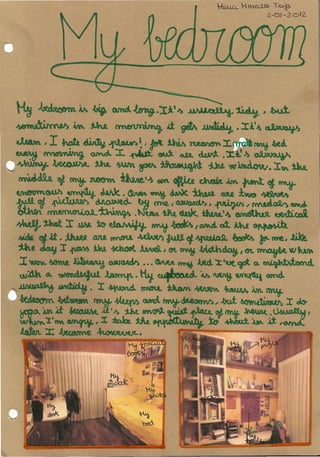 María Morales Trejo
2-02-2012
My bedroom
My bedroom is big and long. It's usually tidy, but
sometimes in the morning it gets untidy. It's always
clean. I hate dirty places!, for this reason I my bed
every morning and I out all dust. It's always
shiny because the sun goes throught the window. In the
middle of my room there's an office chair in front of my
enormous empty desk. Over my desk there are two selves
full of pictures drawed by me, awards, prizes, medals and
other memorial things. Near the desk there's another vertical
shelf that I use to classify my books, and at the opposite
side of it, there are more selves full of special books for me, like
the day I pass the school level, or my birthday, or maybe when
I won some literary awards... Over my bed I've got a nightstand
with a wonderful lamp. My cupboard is very empty and
usually untidy. I spend more than seven hours in my
bedroom between my sleeps and my dreams, but sometimes I do
yoga in it because it's the most quiet place of my house. Usually,
when I'm angry, I take the opportunity to shout in it, and
later I became however.
My special
My
desk
My
My
bed
My
My